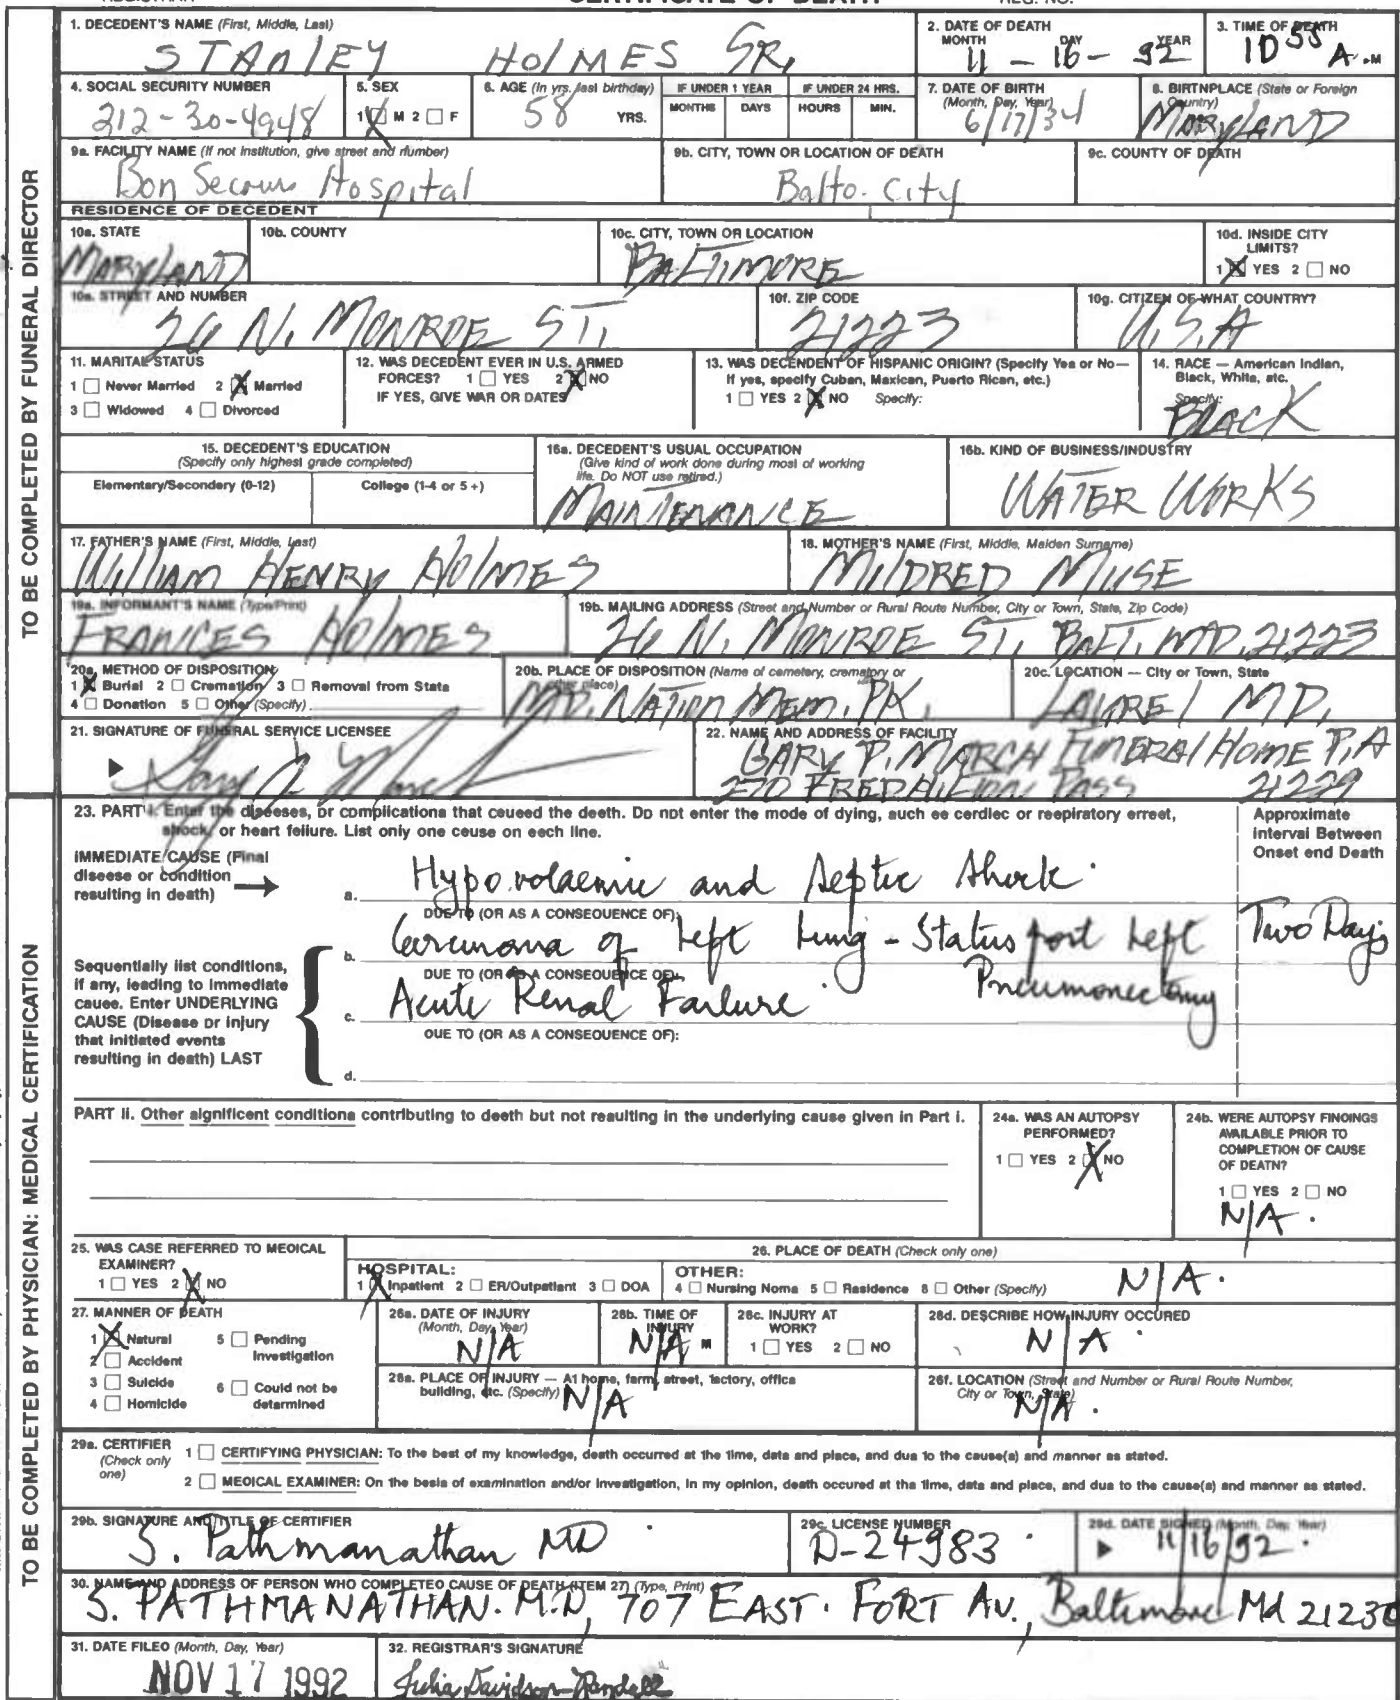 CERTIFICATE OF DEATH
1. DECEDENT'S NAME (First, Middle, Last)
STANLEY HOLMES SR.
2. DATE OF DEATH
MONTH DAY YEAR
11 - 16 - 92
3. TIME OF DEATH
10 55 A.M
4. SOCIAL SECURITY NUMBER
212-30-4948
5. SEX
1 ☒ M 2 ☐ F
6. AGE (In yrs. last birthday)
58 YRS.
IF UNDER 1 YEAR
MONTHS DAYS
IF UNDER 24 HRS.
HOURS MIN.
7. DATE OF BIRTH
(Month, Day, Year)
6/17/34
8. BIRTNPLACE (State or Foreign Country)
MARYLAND
9a. FACILITY NAME (If not institution, give street and number)
Bon Secours Hospital
9b. CITY, TOWN OR LOCATION OF DEATH
Balto. City
9c. COUNTY OF DEATH
RESIDENCE OF DECEDENT
10a. STATE
MARYLAND
10b. COUNTY
10c. CITY, TOWN OR LOCATION
BALTIMORE
10d. INSIDE CITY LIMITS?
1 ☒ YES 2 ☐ NO
10e. STREET AND NUMBER
26 N. MONROE ST.
10f. ZIP CODE
21223
10g. CITIZEN OF WHAT COUNTRY?
U.S.A
11. MARITAL STATUS
1 ☐ Never Married 2 ☒ Married
3 ☐ Widowed 4 ☐ Divorced
12. WAS DECEDENT EVER IN U.S. ARMED
FORCES? 1 ☐ YES 2 ☒ NO
IF YES, GIVE WAR OR DATES
13. WAS DECENDENT OF HISPANIC ORIGIN? (Specify Yes or No—
If yes, specify Cuban, Maxican, Puerto Rican, etc.)
1 ☐ YES 2 ☒ NO Specify:
14. RACE — American Indian,
Black, White, etc.
Specify:
BLACK
15. DECEDENT'S EDUCATION
(Specify only highest grade completed)
Elementary/Secondary (0-12) College (1-4 or 5+)
16a. DECEDENT'S USUAL OCCUPATION
(Give kind of work done during most of working
life. Do NOT use retired.)
MAINTENANCE
16b. KIND OF BUSINESS/INDUSTRY
WATER WORKS
17. FATHER'S NAME (First, Middle, Last)
WILLIAM HENRY HOLMES
18. MOTHER'S NAME (First, Middle, Maiden Surname)
MILDRED MUSE
19a. INFORMANT'S NAME (Type/Print)
FRANCES HOLMES
19b. MAILING ADDRESS (Street and Number or Rural Route Number, City or Town, State, Zip Code)
26 N. MONROE ST. BALT. MD. 21223
20a. METHOD OF DISPOSITION
1 ☒ Burial 2 ☐ Cremation 3 ☐ Removal from State
4 ☐ Donation 5 ☐ Other (Specify)
20b. PLACE OF DISPOSITION (Name of cemetery, crematory or other place)
MD. NATION MEM. PK.
20c. LOCATION — City or Town, State
LAUREL MD.
21. SIGNATURE OF FUNERAL SERVICE LICENSEE
22. NAME AND ADDRESS OF FACILITY
GARY P. MARCH FUNERAL HOME P.A
270 FREDHILTON PASS 21229
23. PART I. Enter the diseeses, or complications that ceueed the death. Do not enter the mode of dying, auch ee cerdlec or reepiratory erreet,
shock, or heart feilure. List only one ceuse on eech line.
Approximate
Interval Between
Onset end Death
IMMEDIATE CAUSE (Final
diseese or condition
resulting in death)
a. Hypovolaemic and Septic Shock.
DUE TO (OR AS A CONSEQUENCE OF):
b. Carcinoma of Left Lung - Status post Left Pneumonectomy
Two Days
DUE TO (OR AS A CONSEQUENCE OF):
Sequentially list conditions,
if any, leading to immediate
cauee. Enter UNDERLYING
CAUSE (Disease or injury
that initiated events
resulting in death) LAST
c. Acute Renal Failure
OUE TO (OR AS A CONSEQUENCE OF):
d.
PART II. Other significent conditiona contributing to deeth but not reaulting in the underlying cause given in Part I.
24a. WAS AN AUTOPSY
PERFORMED?
1 ☐ YES 2 ☒ NO
24b. WERE AUTOPSY FINOINGS
AVAILABLE PRIOR TO
COMPLETION OF CAUSE
OF DEATN?
1 ☐ YES 2 ☐ NO
N/A.
25. WAS CASE REFERRED TO MEOICAL
EXAMINER?
1 ☐ YES 2 ☒ NO
26. PLACE OF DEATH (Check only one)
HOSPITAL:
1 ☒ Inpatient 2 ☐ ER/Outpatient 3 ☐ DOA
OTHER:
4 ☐ Nursing Noma 5 ☐ Rasidence 8 ☐ Other (Specify)
N/A.
27. MANNER OF DEATH
1 ☒ Natural 5 ☐ Pending Investigation
2 ☐ Accident
3 ☐ Suicide 6 ☐ Could not be determined
4 ☐ Homicide
28a. DATE OF INJURY
(Month, Day, Year)
N/A
28b. TIME OF
INJURY
N/A M
28c. INJURY AT
WORK?
1 ☐ YES 2 ☐ NO
28d. DESCRIBE HOW INJURY OCCURED
N/A.
28a. PLACE OF INJURY — At home, farm, street, factory, offica
building, etc. (Specify)
N/A
26f. LOCATION (Street and Number or Rural Route Number,
City or Town, State)
N/A.
29a. CERTIFIER
(Check only
one)
1 ☐ CERTIFYING PHYSICIAN: To the best of my knowledge, death occurred at the time, data and place, and dua to the cause(a) and manner as stated.
2 ☐ MEOICAL EXAMINER: On the besis of examination and/or investigation, in my opinion, death occured at tha time, data and place, and due to the cause(a) and manner as stated.
29b. SIGNATURE AND TITLE OF CERTIFIER
S. Pathmanathan MD
29c. LICENSE NUMBER
D-24983.
29d. DATE SIGNED (Month, Day, Year)
11/16/92.
30. NAME AND ADDRESS OF PERSON WHO COMPLETEO CAUSE OF DEATH (ITEM 27) (Type, Print)
S. PATHMANATHAN. M.D, 707 EAST. FORT AV., Baltimore Md 21230
31. DATE FILEO (Month, Day, Year)
NOV 17 1992
32. REGISTRAR'S SIGNATURE
Julia Davidson-Randall
TO BE COMPLETED BY FUNERAL DIRECTOR
TO BE COMPLETED BY PHYSICIAN: MEDICAL CERTIFICATION